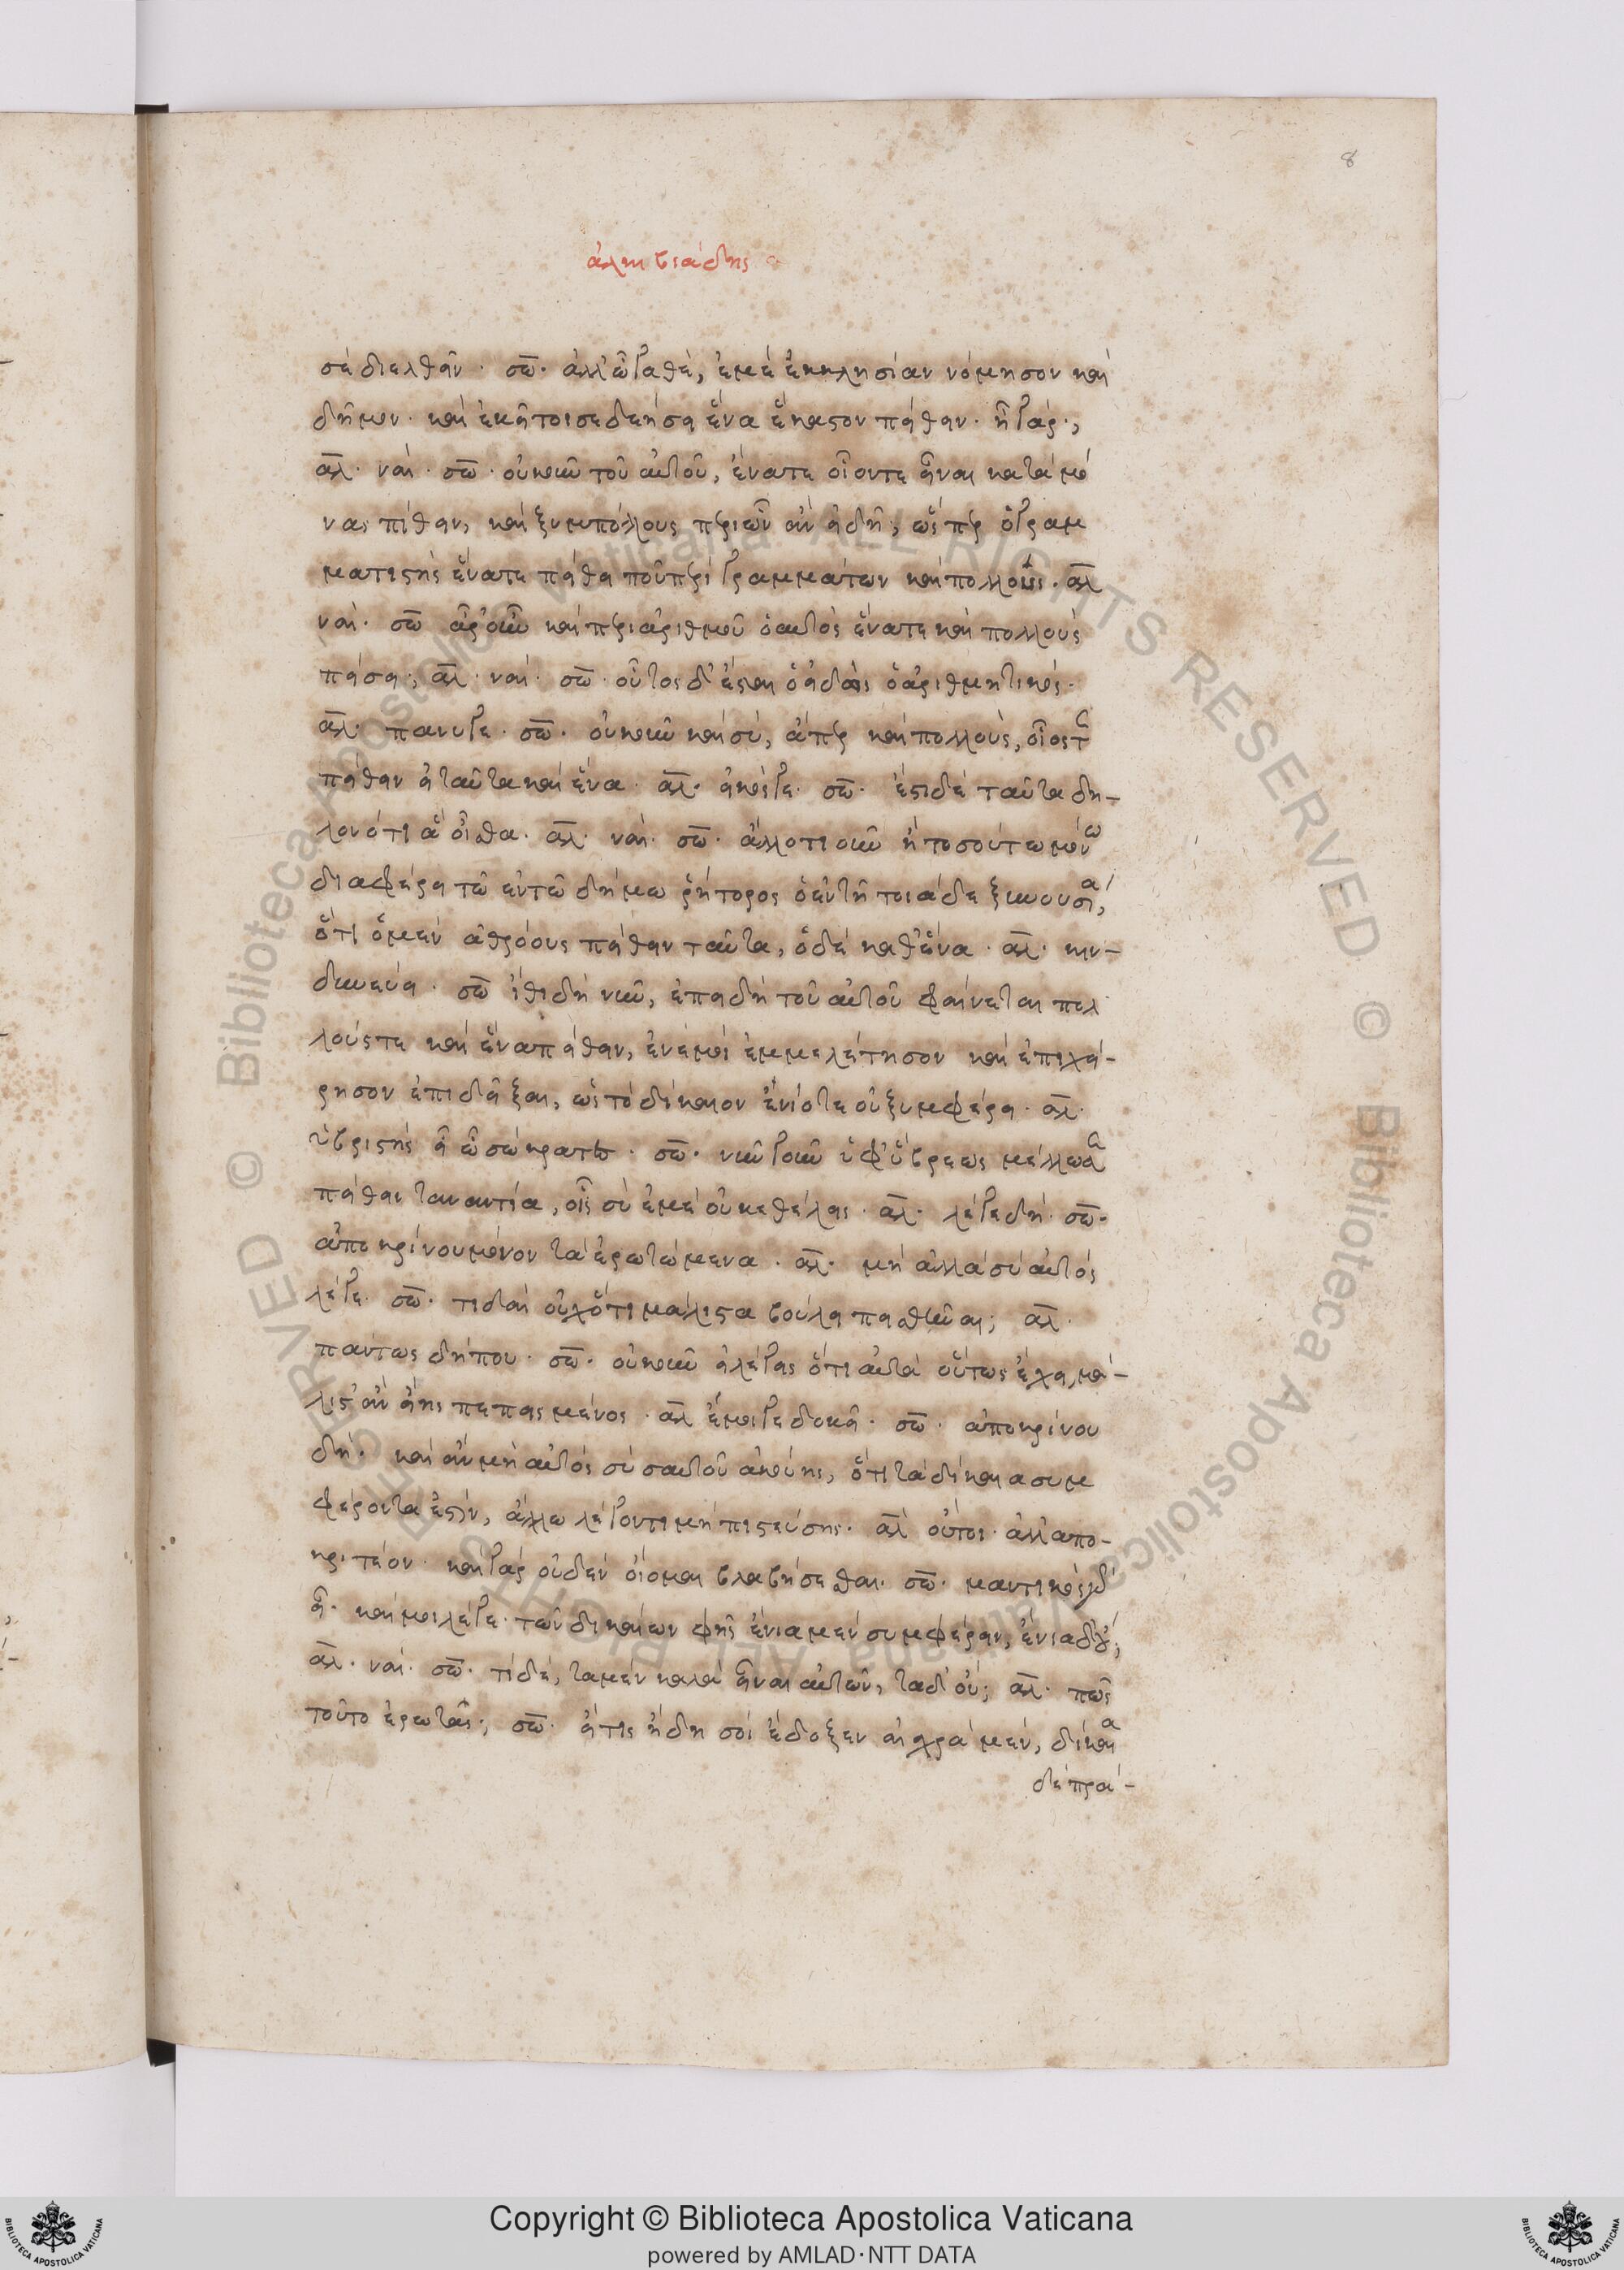 8
ἀλκιβιάδης α
σὲ διελθεῖν. σω. ἀλλ' ὦ 'γαθὲ, ἐμὲ ἐκκλησίαν νόμισον καὶ
δῆμον. καὶ ἐκεῖ τοί σε δεήσει ἕνα ἕκαστον πείθειν. ἦ γάρ;
αλ. ναί. σω. οὐκοῦν τοῦ αὐτοῦ, ἕνα τε οἷόν τε εἶναι κατὰ μό
νας πείθειν, καὶ ξυμπόλλους περὶ ὧν ἂν εἰδῇ, ὥσπερ ὁ γραμ
ματιστὴς ἕνα τε πείθει που περὶ γραμμάτων καὶ πολλούς. αλ
ναί. σω ἆρ' οὖν καὶ περὶ ἀριθμοῦ ὁ αὐτὸς ἕνα τε καὶ πολλοὺς
πείσει; αλ. ναί. σω. οὗτος δ' ἔσται ὁ εἰδὼς ὁ ἀριθμητικός.
αλ. πάνυ γε. σω. οὐκοῦν καὶ σὺ, ἅπερ καὶ πολλοὺς, οἷός τε
πείθειν εἶ ταῦτα καὶ ἕνα. αλ. εἰκός γε. σω. ἔστι δὲ ταῦτα δη-
λονότι ἃ οἶσθα. αλ. ναί. σω. ἄλλο τι οὖν ἢ τοσοῦτο μόνω
διαφέρει τῶ ἐν τῶ δήμω ῥήτορος ὁ ἐν τῇ τοιᾷδε ξυνουσίᾳ,
ὅτι ὁ μὲν ἀθρόους πείθειν ταῦτα, ὁ δὲ καθ' ἕνα. αλ. κιν-
δυνεύει. σω ἴθι δὴ νῦν, ἐπειδὴ τοῦ αὐτοῦ φαίνεται πολ
λούς τε καὶ ἕνα πείθειν, ἐν ἐμοὶ ἐμμελέτησον καὶ ἐπιχεί-
ρησον ἐπιδεῖξαι, ὡς τὸ δίκαιον ἐνίοτε οὐ ξυμφέρει. αλ.
ὑβριστὴς εἶ ὦ σώκρατες. σω. νῦν γοῦν ὑφ' ὕβρεως μέλλω σε
πείθειν ταναντία, οἷς σὺ ἐμὲ οὐκ ἐθέλεις. αλ. λέγε δή. σω.
ἀποκρίνου μόνον τὰ ἐρωτώμενα. αλ. μὴ ἀλλὰ σὺ αὐτὸς
λέγε. σω. τί δαὶ οὐχ ὅτι μάλιστα βούλει πεισθῆναι; αλ.
πάντως δήπου. σω. οὐκοῦν εἰ λέγεις ὅτι αὐτὰ οὕτως ἔχει, μά-
λιστ' ἂν εἴης πεπεισμένος. αλ ἔμοιγε δοκεῖ. σω. ἀποκρίνου
δή. καὶ ἂν μὴ αὐτὸς σὺ σαυτοῦ ἀκούῃς, ὅτι τὰ δίκαια συμ
φέροντά ἐστιν, ἄλλω λέγοντι μὴ πιστεύσῃς. αλ οὔτοι. ἀλλ' ἀπο-
κριτέον. καὶ γὰρ οὐδὲν οἴομαι βλαβήσεσθαι. σω. μαντικὸς γὰρ
εἶ. καί μοι λέγε. τῶν δικαίων φῂς ἔνια μὲν συμφέρειν, ἔνια δ' οὔ;
αλ. ναί. σω. τί δὲ, τὰ μὲν καλὰ εἶναι αὐτῶν, τὰ δ' οὔ; αλ. πῶς
τοῦτο ἐρωτᾷς; σω. εἴ τις ἤδη σοι ἔδοξεν αἰσχρὰ μὲν, δίκαια
δὲ πρά-
Copyright © Biblioteca Apostolica Vaticana
powered by AMLAD·NTT DATA